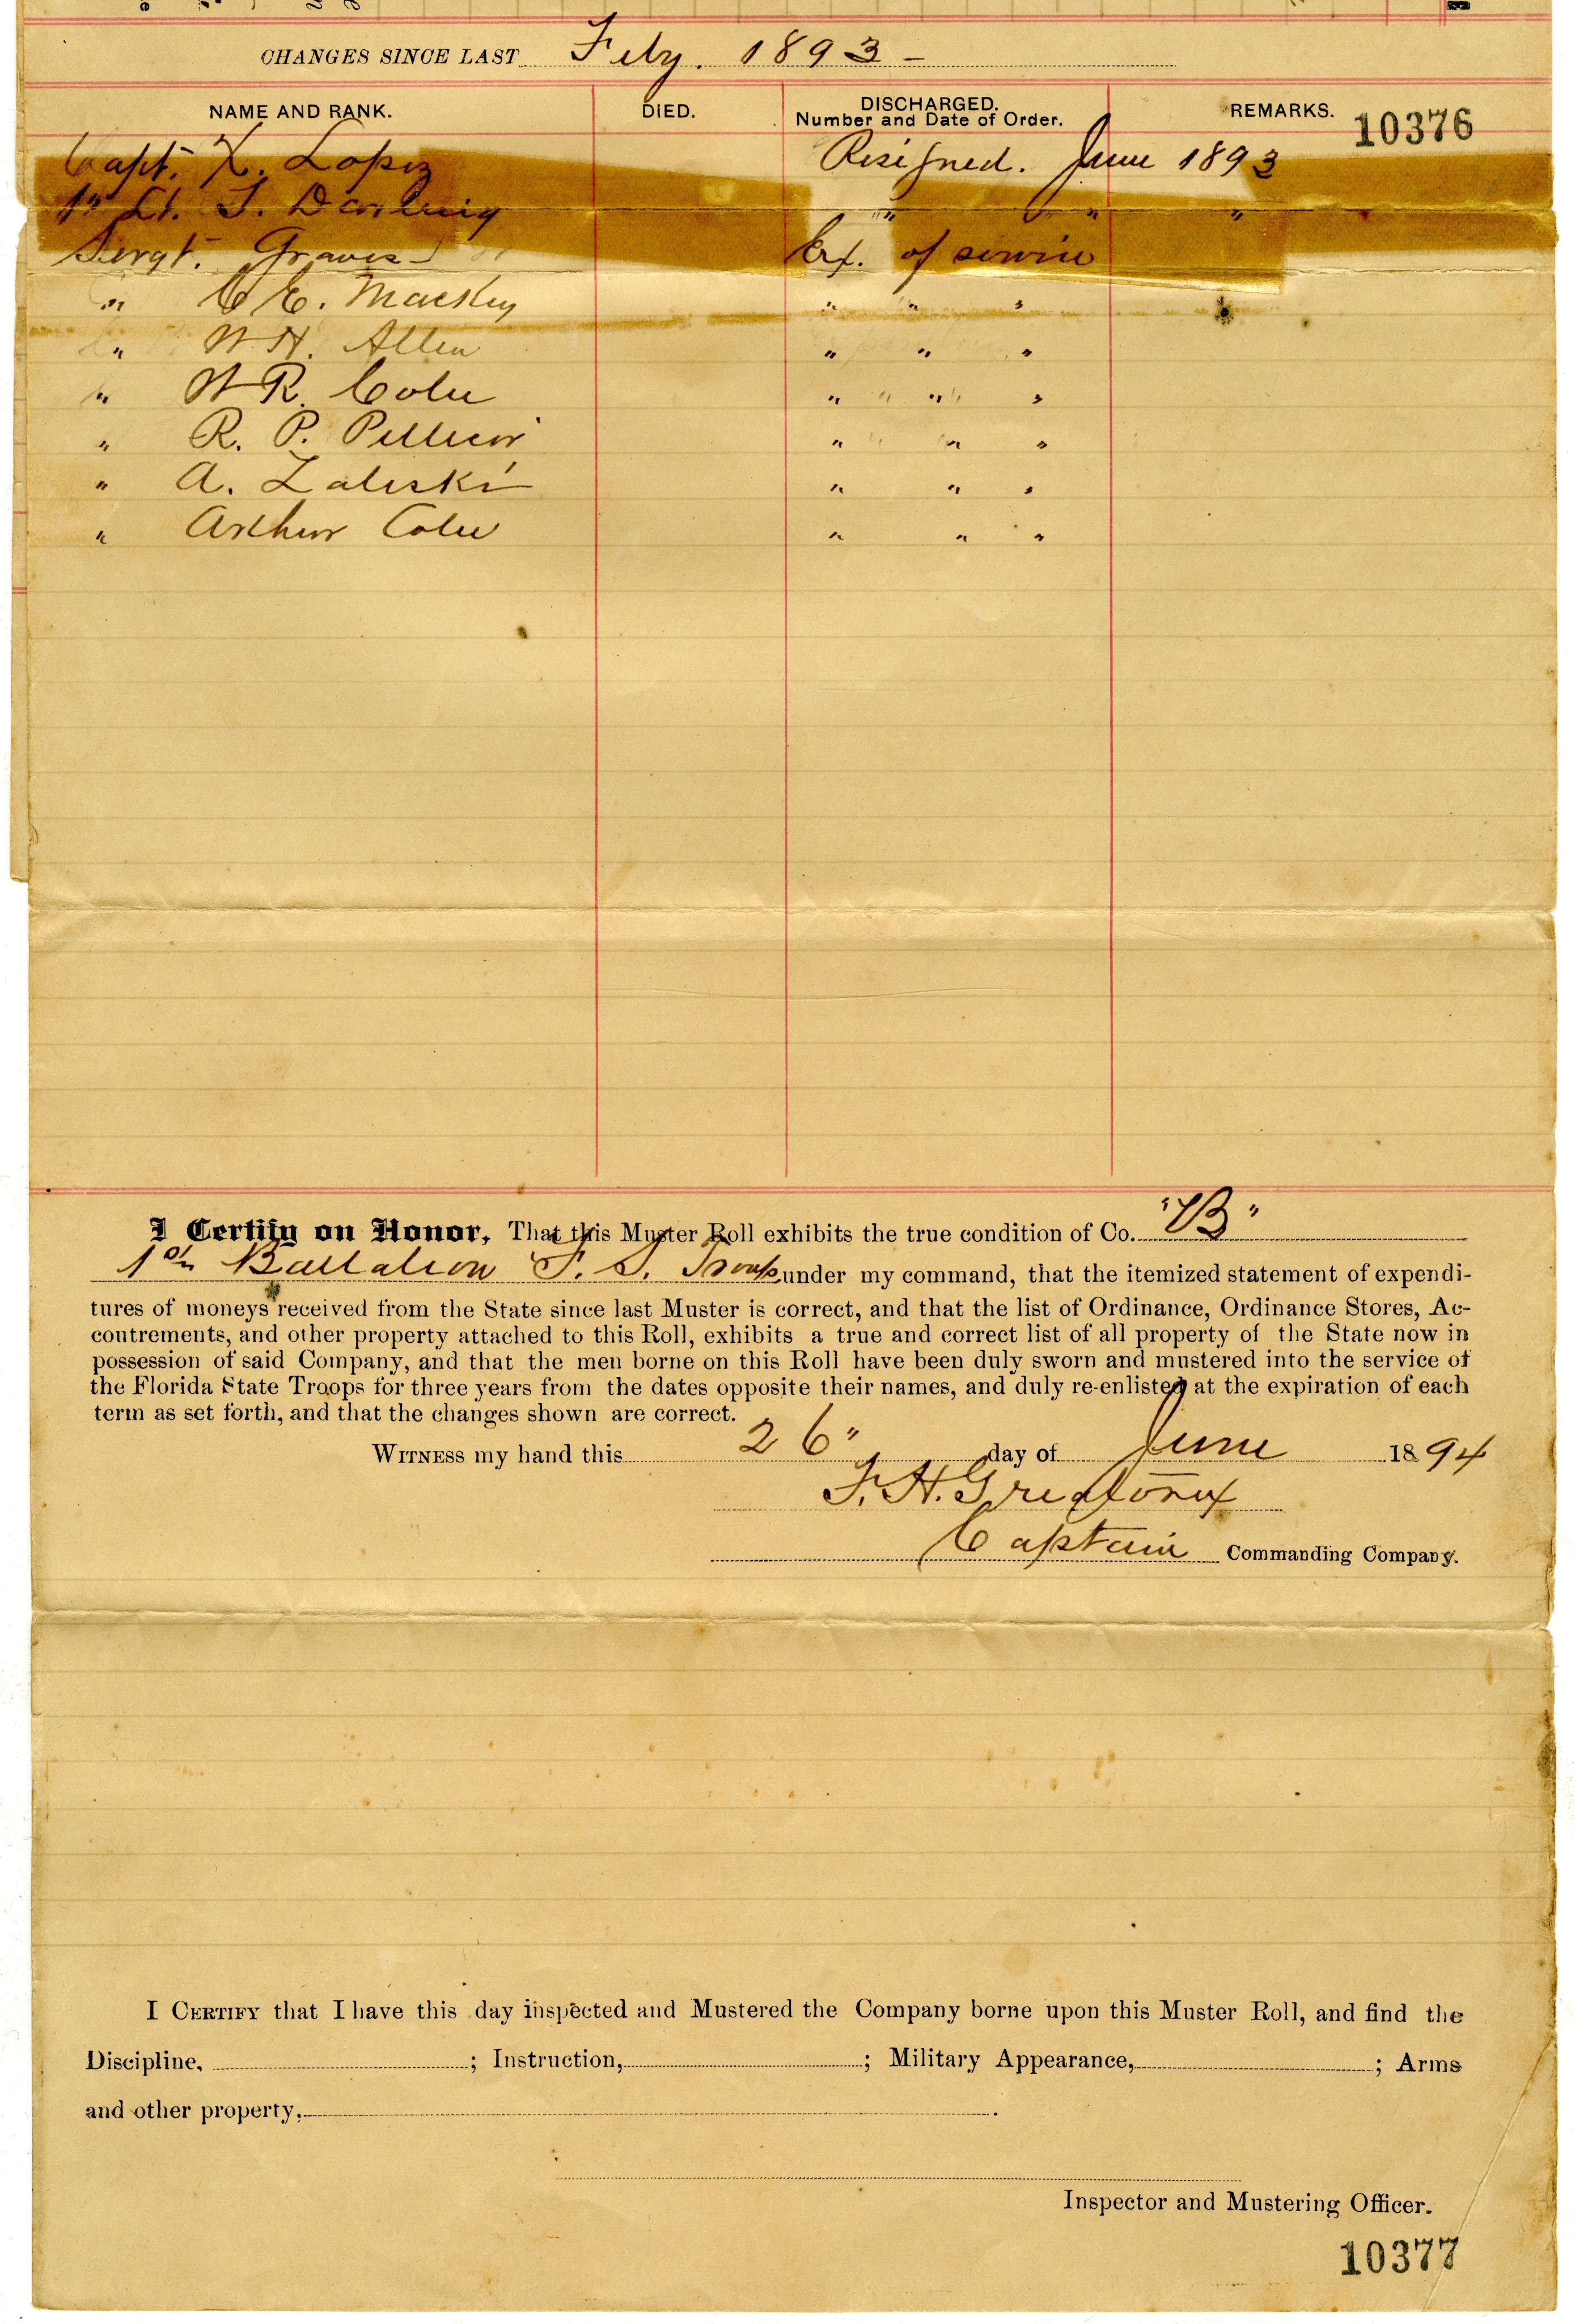 CHANGES SINCE LAST Feby. 1893 –
NAME AND RANK. DIED. DISCHARGED. Number and Date of Order. REMARKS.
10376
Capt. X. Lopez Resigned. June 1893
1" Lt. J. Darling " " "
Sergt. Graves Ex. of service
" C E. Mackey " " "
" W H. Allen " " "
" W R. Colee " " "
" R. P. Pellicer " " "
" A. Zaleski " " "
" Arthur Colee " " "
I Certify on Honor, That this Muster Roll exhibits the true condition of Co. "B"
1st Battalion F. S. Troops under my command, that the itemized statement of expendi-
tures of moneys received from the State since last Muster is correct, and that the list of Ordinance, Ordinance Stores, Ac-
coutrements, and other property attached to this Roll, exhibits a true and correct list of all property of the State now in
possession of said Company, and that the men borne on this Roll have been duly sworn and mustered into the service of
the Florida State Troops for three years from the dates opposite their names, and duly re-enlisted at the expiration of each
term as set forth, and that the changes shown are correct.
WITNESS my hand this 26" day of June 1894
F. H. Greatorex
Captain Commanding Company.
I CERTIFY that I have this day inspected and Mustered the Company borne upon this Muster Roll, and find the
Discipline, ; Instruction, ; Military Appearance, ; Arms
and other property, .
Inspector and Mustering Officer.
10377